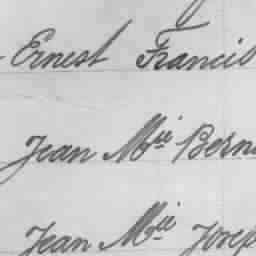 Ernest Francis
Jean Mie Bern
Jean Mie Josep